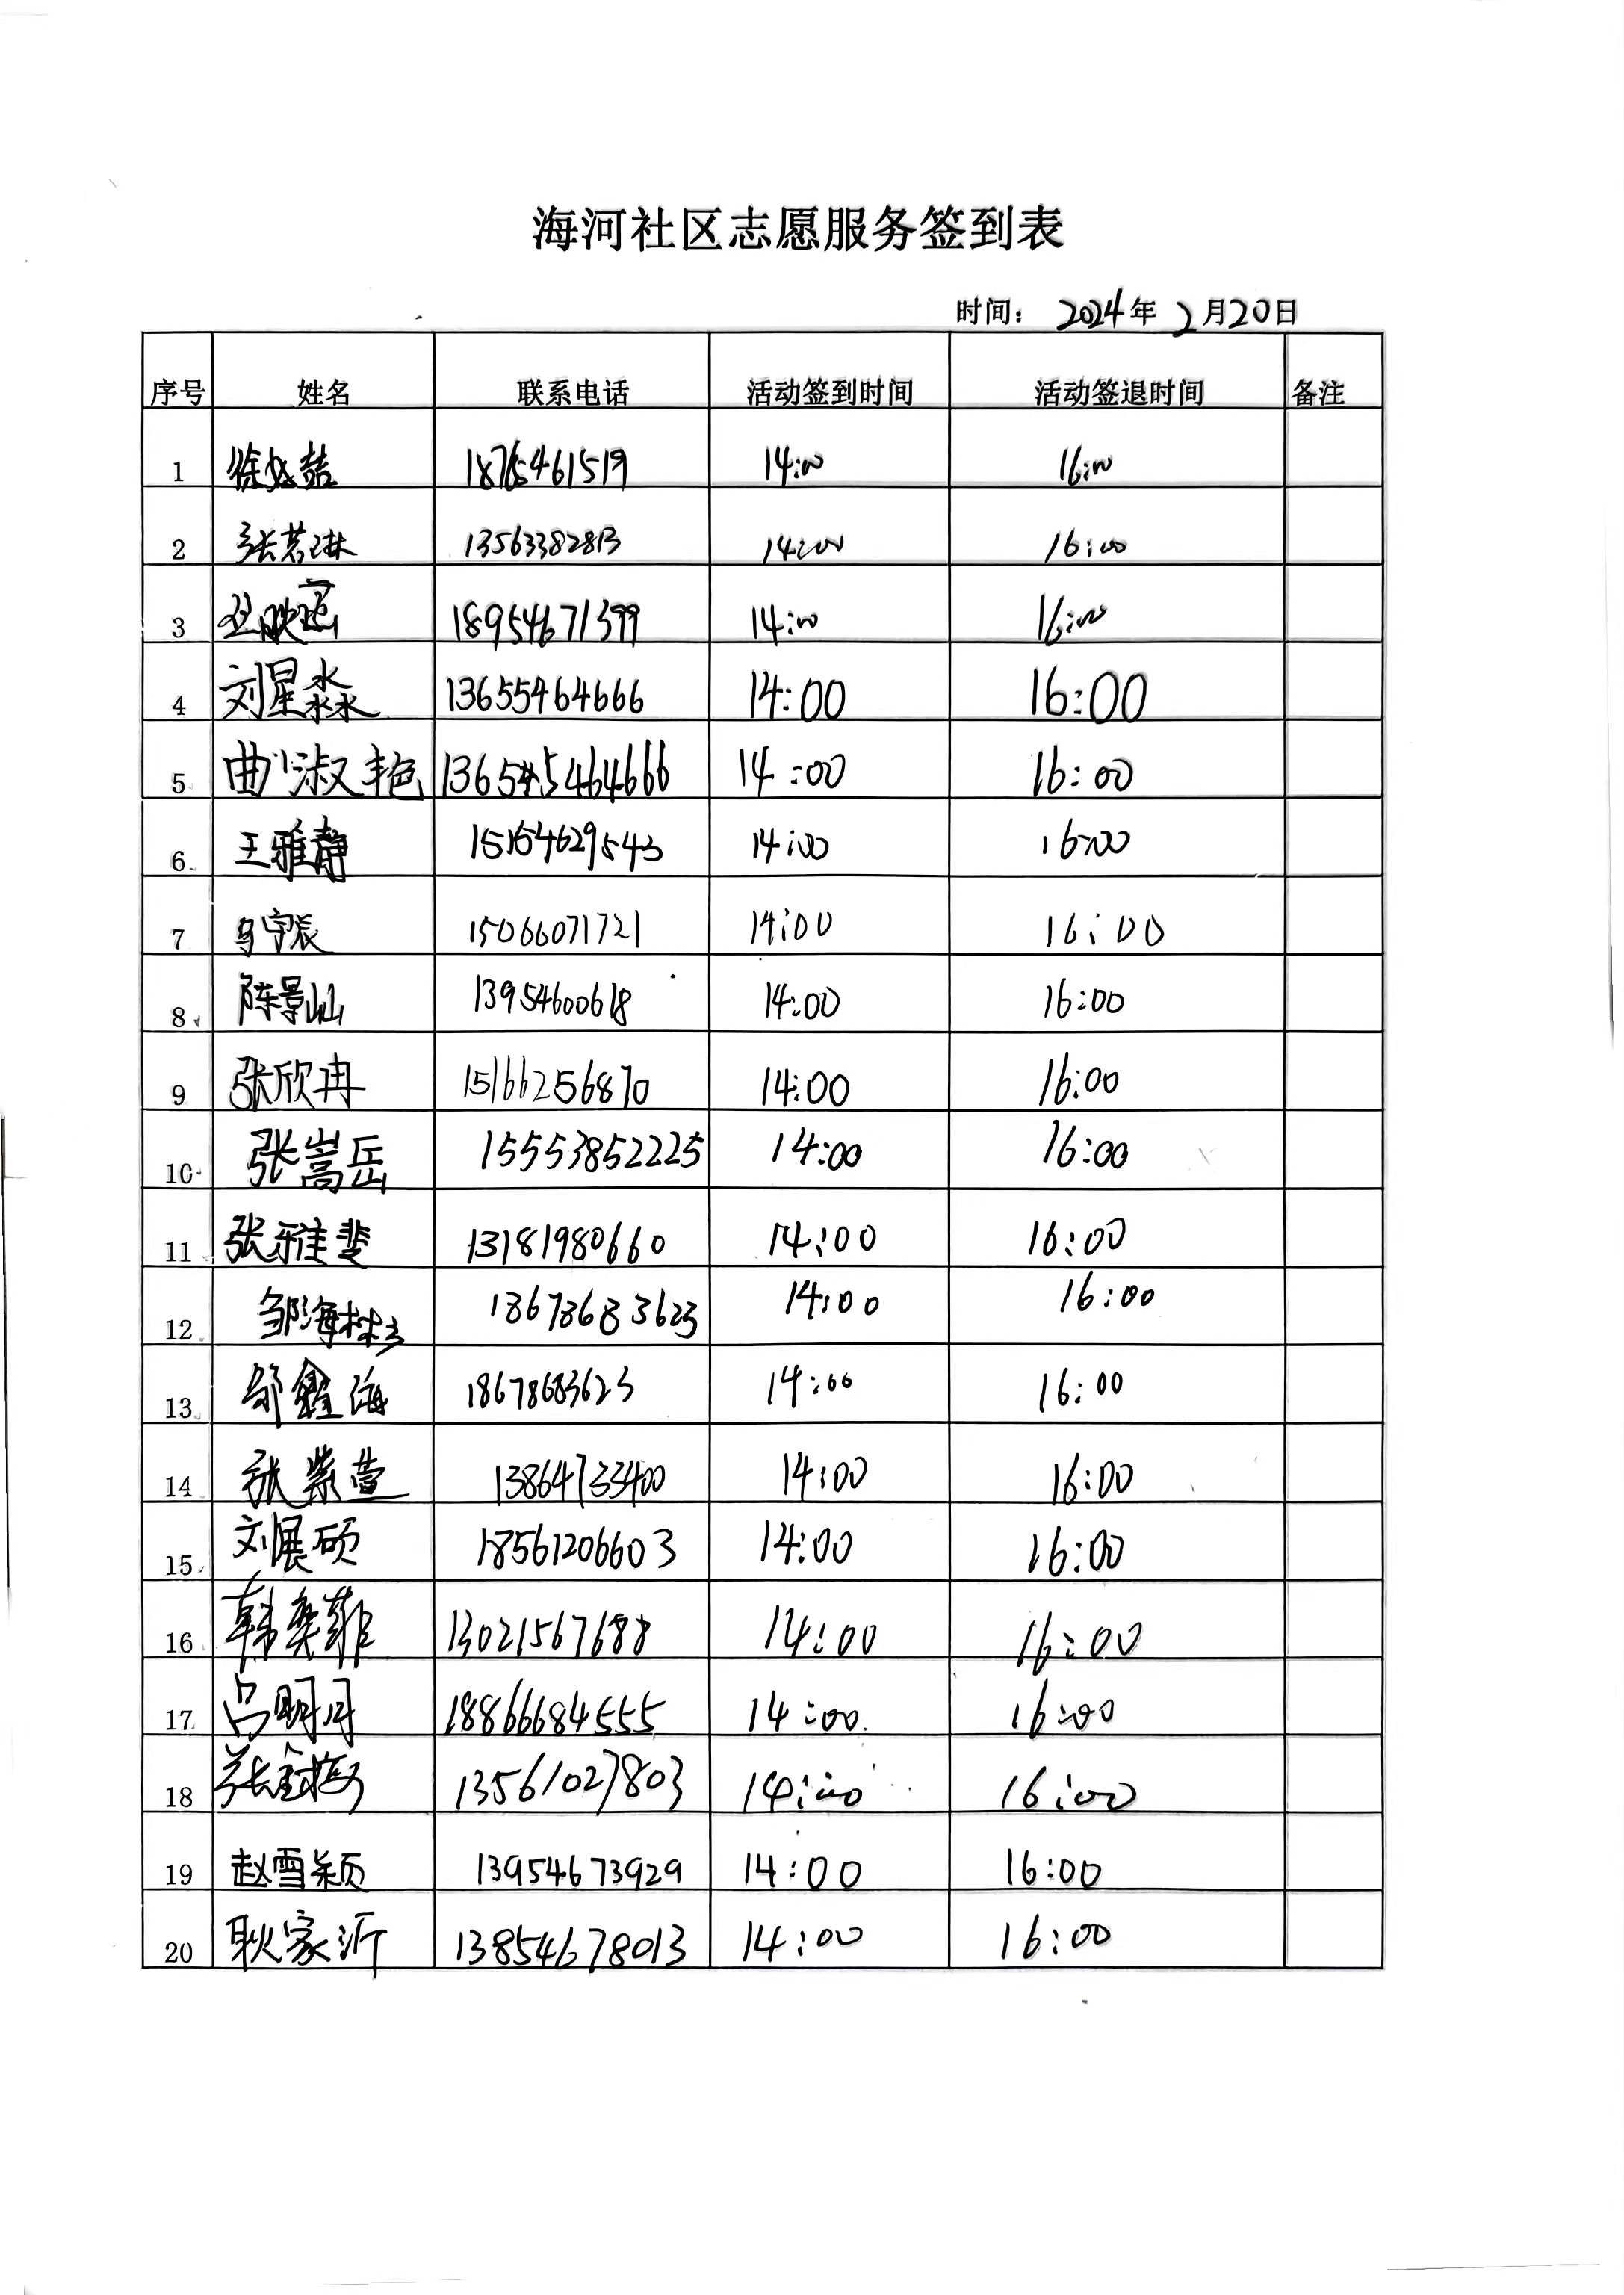 海河社区志愿服务签到表
时间: 2024年 2月20日
序号 姓名 联系电话 活动签到时间 活动签退时间 备注
1 18765461519 14:00 16:00
2 张茗琳 13563382813 14:00 16:00
3 18954671399 14:00 16:00
4 刘星淼 13655464666 14:00 16:00
5 曲淑艳 14:00 16:00
6 王雅静 15154629543 14:00 16:00
7 马宇辰 15066071721 14:00 16:00
8 陈景灿 13954600618 14:00 16:00
9 张欣冉 15166256870 14:00 16:00
10 张嵩岳 15553852225 14:00 16:00
11 张雅斐 13181980660 14:00 16:00
12 邹海彬 18678683623 14:00 16:00
13 邹鑫海 18678683623 14:00 16:00
14 张紫萱 13864733400 14:00 16:00
15 刘展硕 18561206603 14:00 16:00
16 韩奕菲 13021567688 14:00 16:00
17 吕明月 18866684555 14:00 16:00
18 13561027803 14:00 16:00
19 赵雪颖 13954673929 14:00 16:00
20 耿家沂 13854678013 14:00 16:00